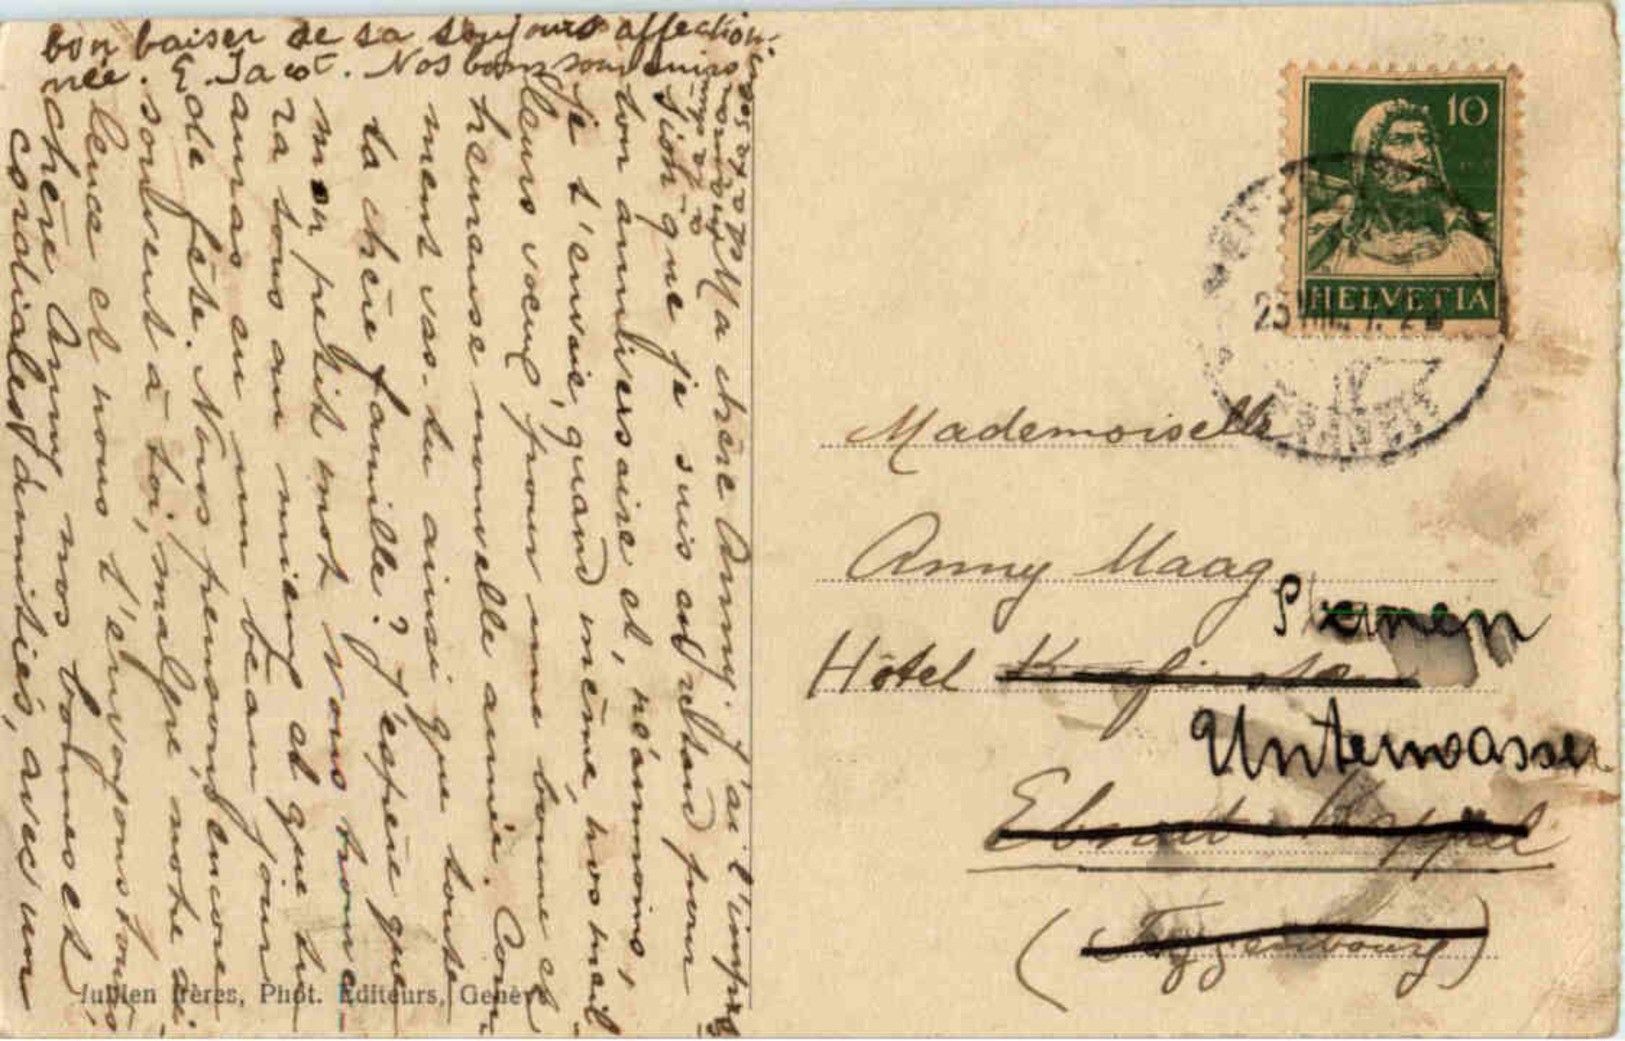 Ma chère Anny, J'ai l'impres-
sion que je suis en retard pour
ton anniversaire et, néanmoins,
je t'envoie, quand même, nos meil-
leurs voeux, pour une bonne et
heureuse nouvelle année. Com-
ment vas-tu ainsi que toute
ta chère famille? J'espère que
mon petit mot vous trouve-
ra tous au mieux et que tu
auras eu un beau jour
de fête. Nous pensons encore
souvent à toi, malgré notre si-
lence et nous t'envoyons tous,
chère Anny nos bonnes et
cordiales amitiés, avec un
bon baiser de ta toujours affection-
née. E. Jacot. Nos bons souvenirs
Jullien frères, Phot. Editeurs, Genève
10
HELVETIA
Mademoiselle
Anny Maag
Sternen
Hôtel
Unterwasser
Ebnat-Kappel
(Toggenbourg)